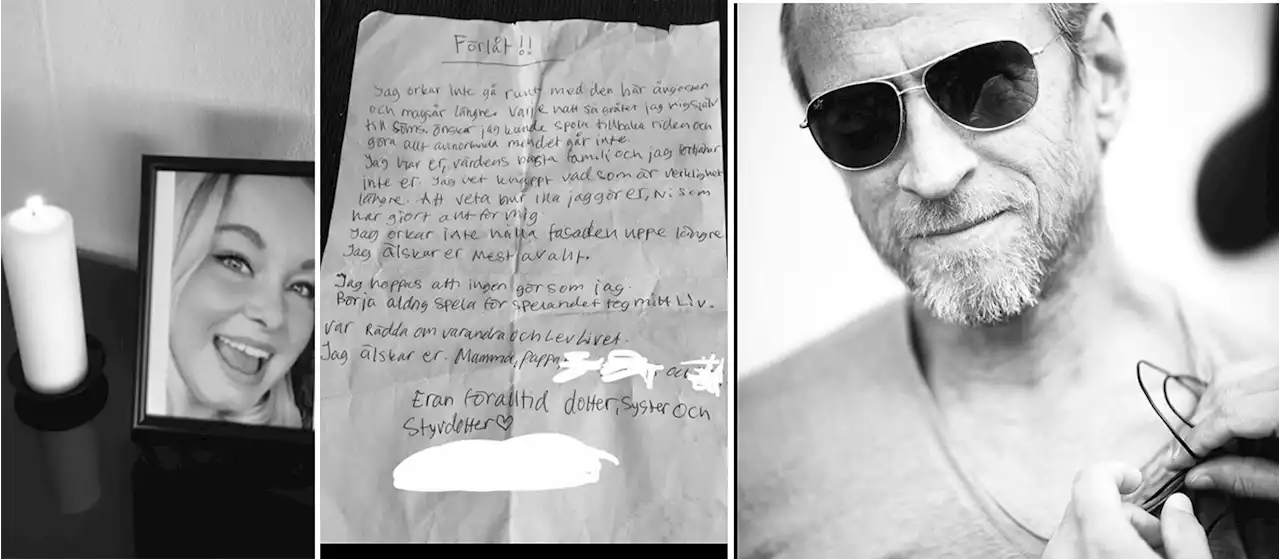 Förlåt!!
Jag orkar inte gå runt med den här ångesten
och magsår längre. Varje natt så gråter jag mig själv
till söms. önskar jag kunde spola tillbaka tiden och
göra allt annorlunda men det går inte.
Jag har er, värdens bästa familj och jag förtjänar
inte er. Jag vet knappt vad som är verklighet
längre. Att veta hur illa jag gör er, Ni som
har gjort allt för mig
Jag orkar inte hålla fasaden uppe längre
Jag älskar er mest av allt.
Jag hoppas att ingen gör som jag.
Börja aldrig spela för spelandet tog mitt Liv.
var Rädda om varandra och Lev Livet.
Jag älskar er. Mamma, Pappa, och
Eran föralltid dotter, Syster och
Styvdotter♡